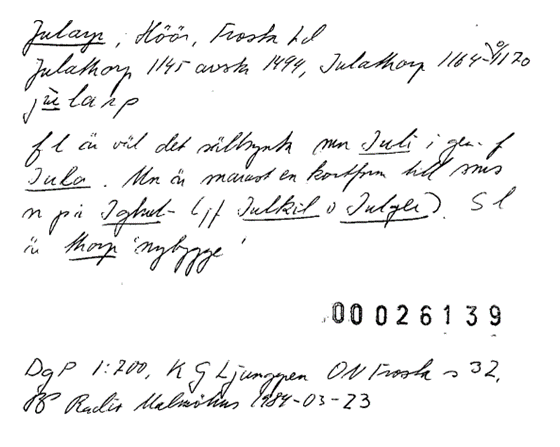 Jularp, Höör, Frosta hd
Julathorp 1145 avskr 1494, Julathorp 1164-1170
jùlarp
f l är väl det sällsynta mn Juli i gen. f
Jula. Mn är snarast en kortform till sms
n på Ighul- (jf Julkil o Julger). S l
är thorp 'nybygge'
00026139
DgP 1:200, K G Ljunggren ON Frosta s 32,
Radio Malmöhus 1984-03-23